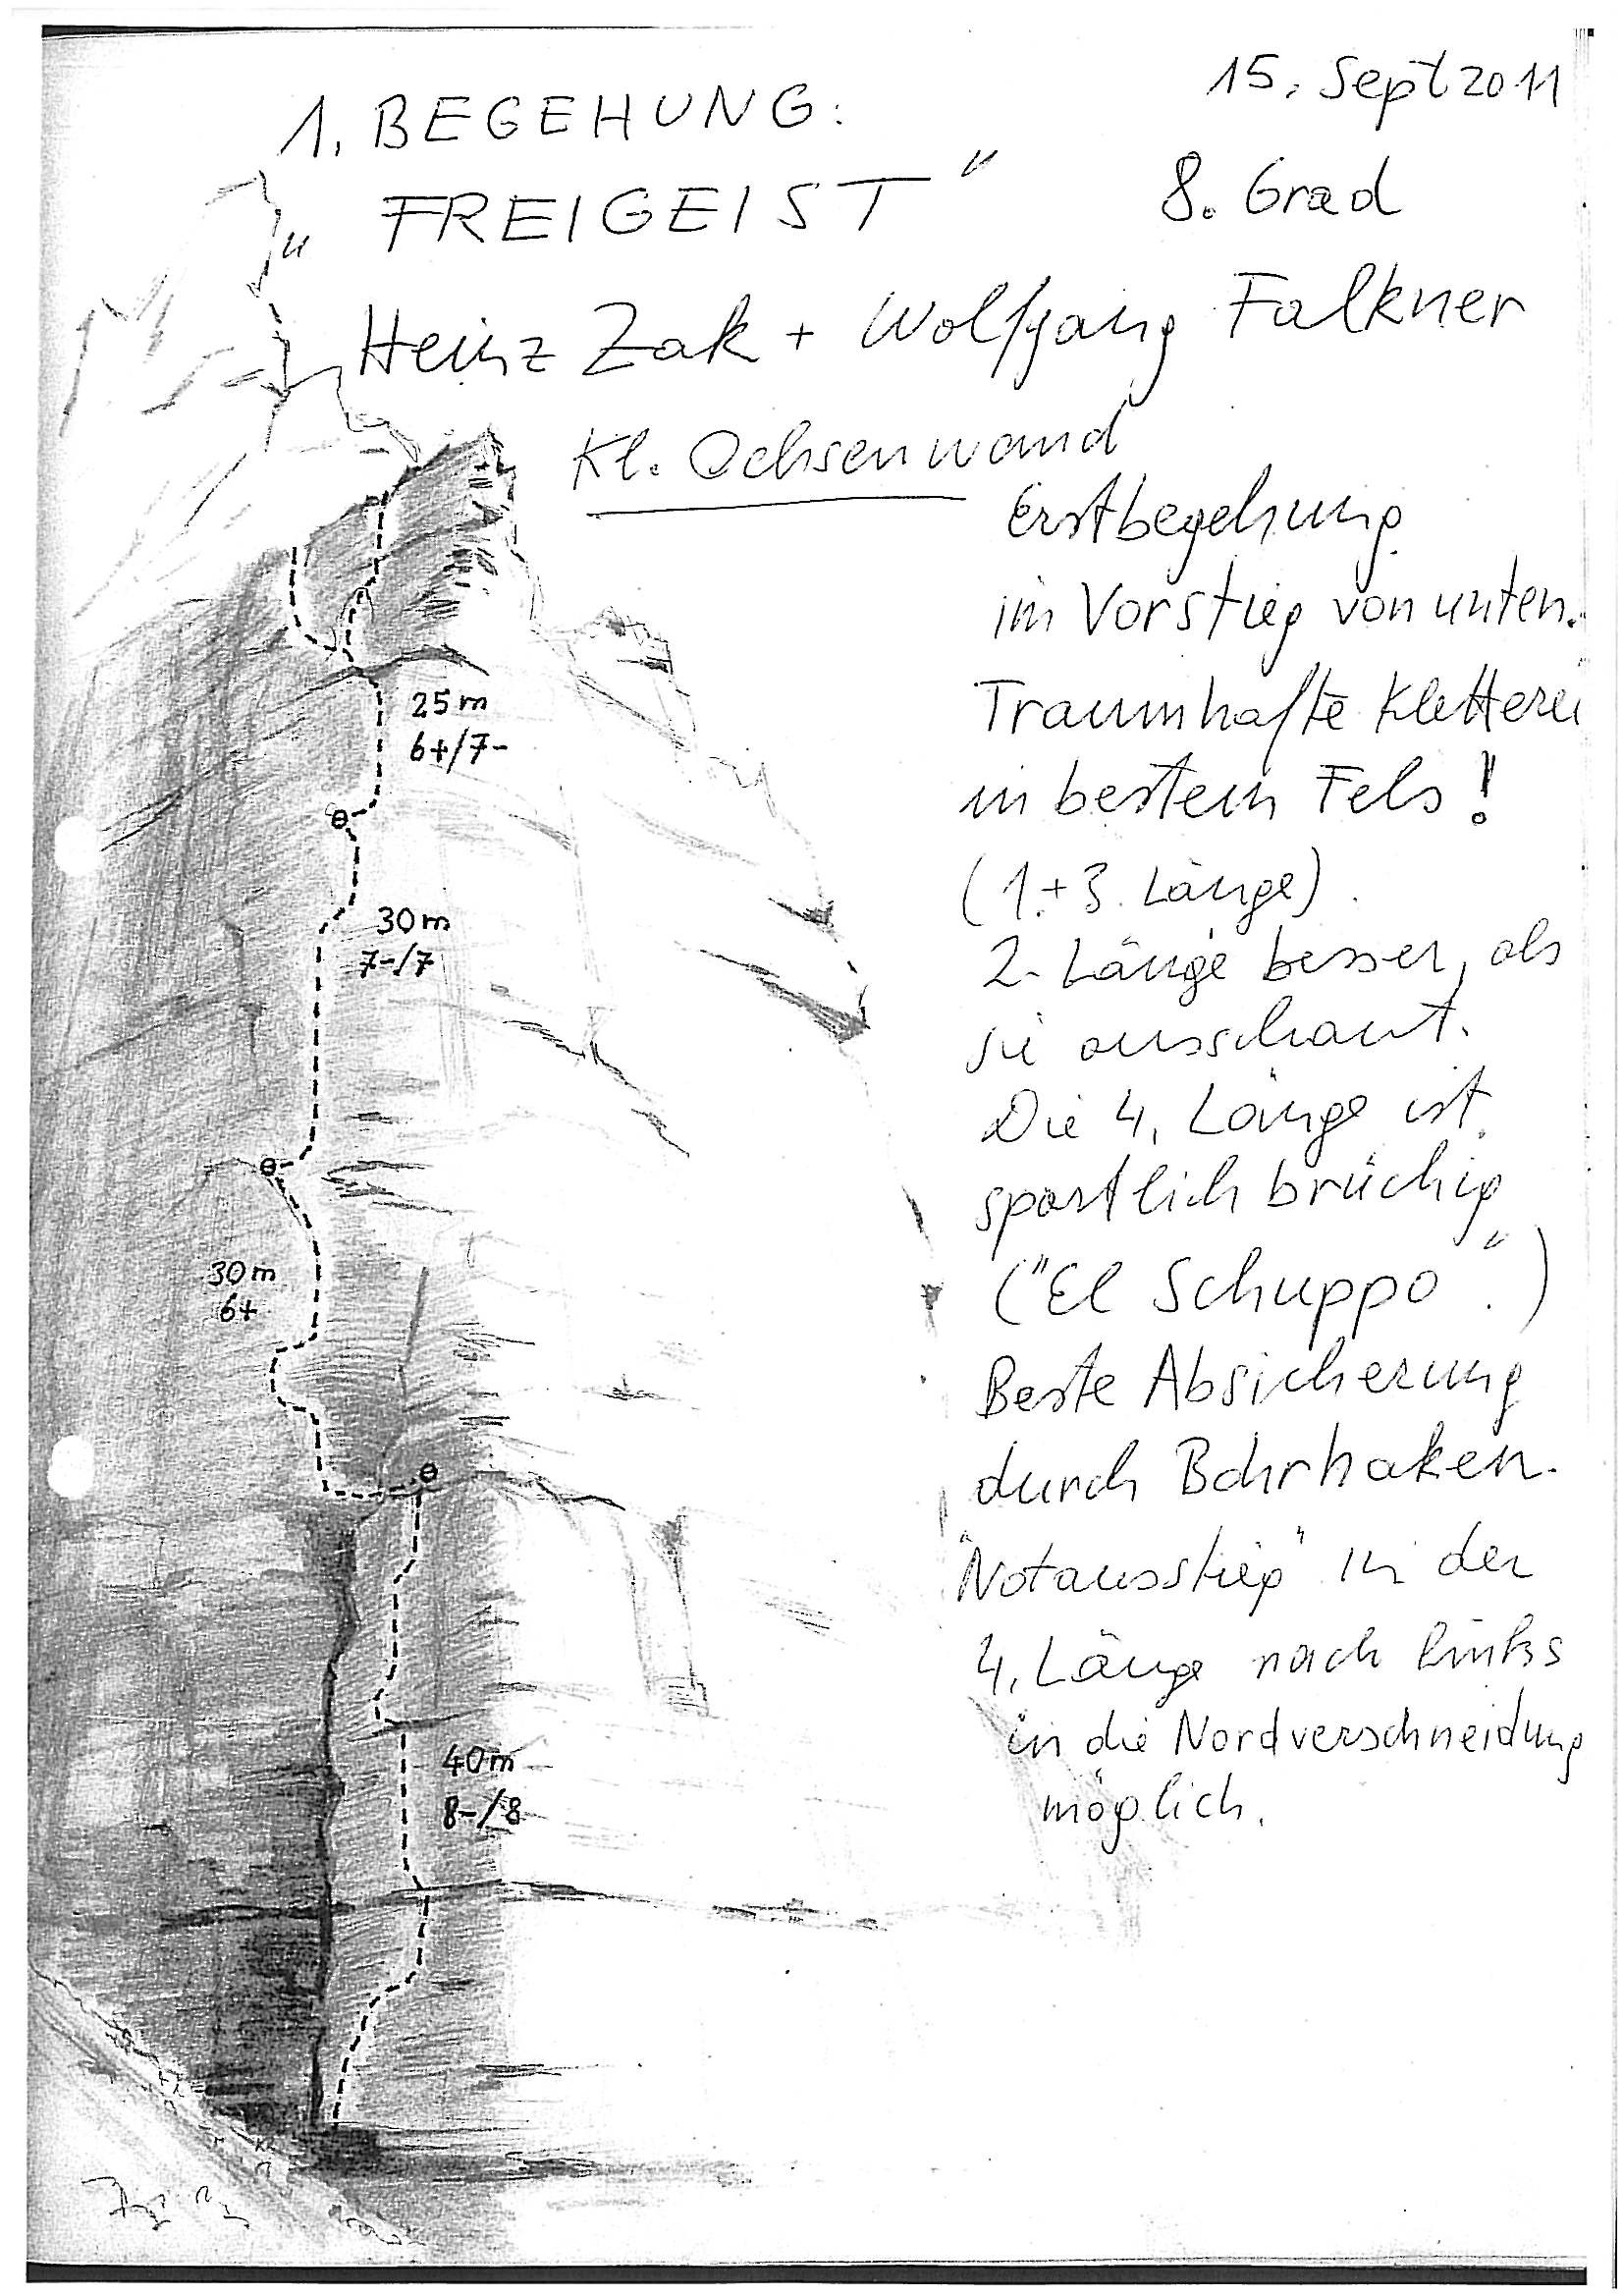 15. Sept 2011
1. BEGEHUNG:
„FREIGEIST“
8. Grad
Heinz Zak + Wolfgang Falkner
Kl. Ochsenwand
Erstbegehung
im Vorstieg von unten.
Traumhafte Kletterei
in bestem Fels!
(1.+3. Länge).
2. Länge besser, als
sie ausschaut.
Die 4. Länge ist
sportlich brüchig
("El Schuppo".)
Beste Absicherung
durch Bohrhaken.
"Notausstieg" in der
4. Länge nach links
in die Nordverschneidung
möglich.
25m
6+/7-
30m
7-/7
30m
6+
40m
8-/8